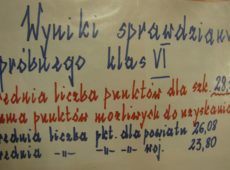 Wyniki sprawdzianu
próbnego klas VI
średnia liczba punktów dla szk.
suma punktów możliwych do uzyskania
średnia liczba pkt. dla powiatu 26,08
średnia -"- -"- woj. 23,80